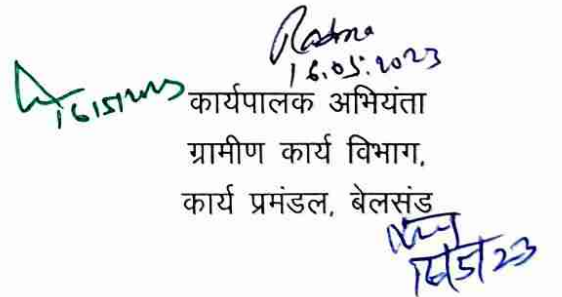 16.05.2023
16/5/2023
कार्यपालक अभियंता
ग्रामीण कार्य विभाग,
कार्य प्रमंडल, बेलसंड
16/5/23